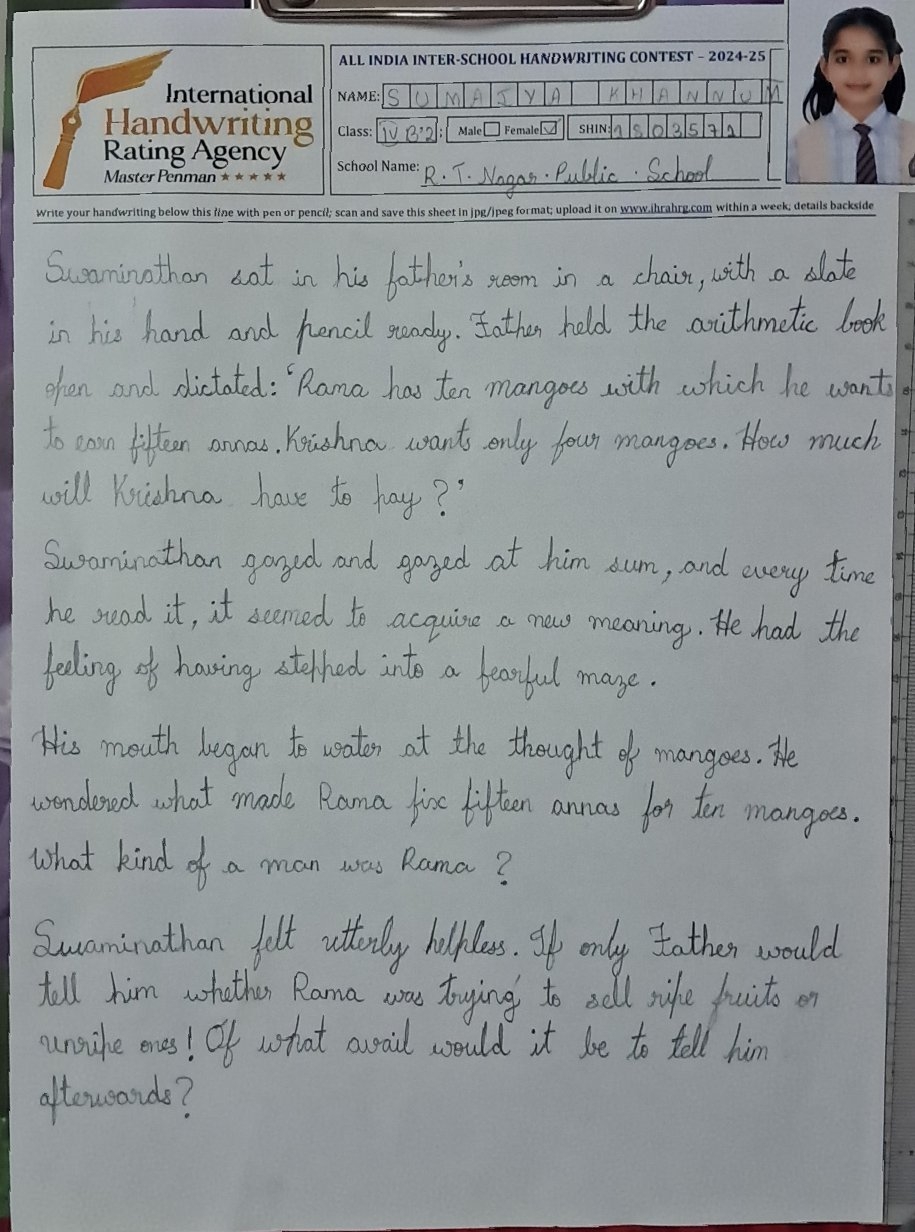 ALL INDIA INTER-SCHOOL HANDWRITING CONTEST - 2024-25
International
Handwriting
Rating Agency
Master Penman ★★★★★
NAME: SUMAIYA KHANNUM
Class: IV B'2 Male Female ☑ SHIN: 1803571
School Name: R. T. Nagar. Public. School
Write your handwriting below this line with pen or pencil; scan and save this sheet in jpg/jpeg format; upload it on www.ihrahrg.com within a week; details backside
Swaminathan sat in his father's room in a chair, with a slate
in his hand and pencil ready. Father held the arithmetic book
open and dictated: 'Rama has ten mangoes with which he wants
to earn fifteen annas. Krishna wants only four mangoes. How much
will Krishna have to pay?'
Swaminathan gazed and gazed at him sum, and every time
he read it, it seemed to acquire a new meaning. He had the
feeling of having stepped into a fearful maze.
His mouth began to water at the thought of mangoes. He
wondered what made Rama fix fifteen annas for ten mangoes.
What kind of a man was Rama?
Swaminathan felt utterly helpless. If only Father would
tell him whether Rama was trying to sell ripe fruits or
unripe ones! Of what avail would it be to tell him
afterwards?